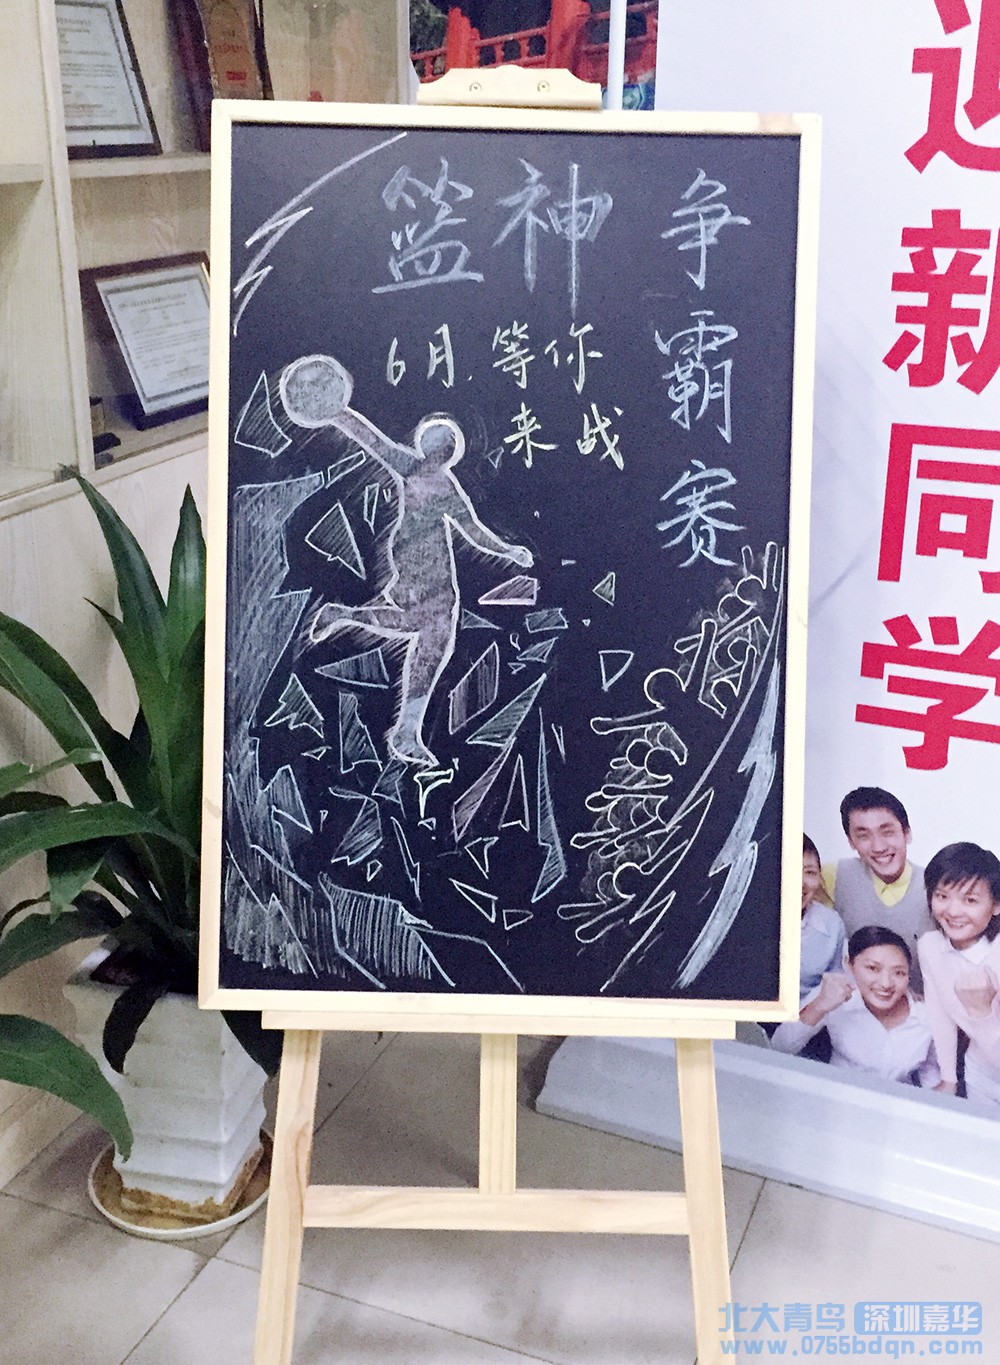 篮神争
霸
赛
6月.等你
来战
迎
新
同
学
北大青鸟 深圳嘉华
www.0755bdqn.com